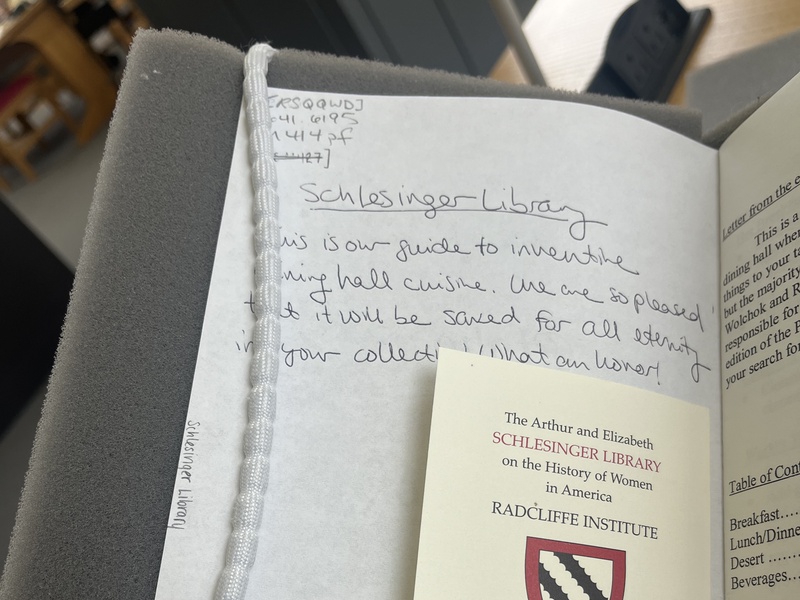 [KRSQQWD]
641.6195
414pf
Schlesinger Library
is is our guide to inventive
ning hall cuisine. We are so pleased
t it will be saved for all eternity
in your collecti What an honor!
Schlesinger Library
The Arthur and Elizabeth
SCHLESINGER LIBRARY
on the History of Women
in America
RADCLIFFE INSTITUTE
Letter from the e
This is a
dining hall whe
things to your ta
but the majority
Wolchok and R
responsible for
edition of the F
your search for
Table of Cont
Breakfast....
Lunch/Dinne
Desert .......
Beverages...